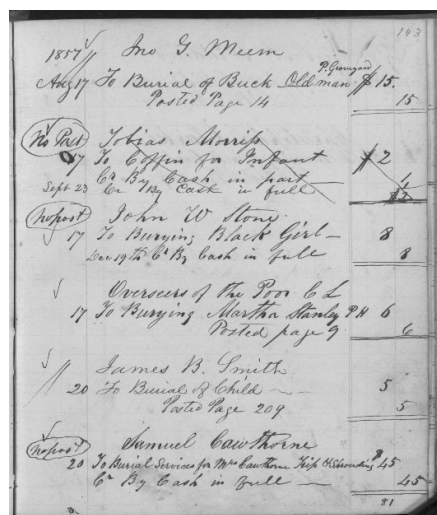 143
1857 Jno G. Meem
P. Graveyard
Aug 17 To Burial of Buck Old man $15.
Posted Page 14 15
No Post Tobias Morriss
17 To Coffin for Infant $2
Cr By Cash in part 1
Sept 23 Cr By Cash in full 1
No post John W Stone
17 To Burying Black Girl — 8
Dec 19th Cr By Cash in full 8
Overseers of the Poor C L
17 To Burying Martha Stanley P H 6
Posted page 9 6
James B. Smith
20 To Burial of Child — 5
Posted Page 209 5
No post Samuel Cawthorne
20 To Burial Services for Mrs Cawthorne & Shrouding $45
Cr By Cash in full — 45
81